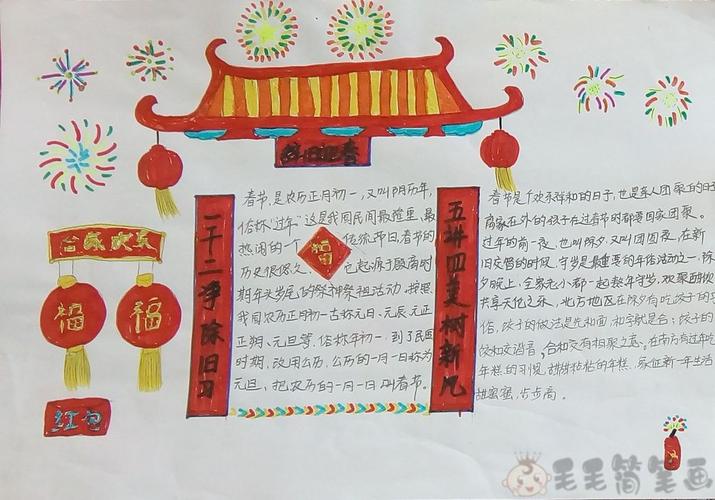 辞旧迎春
合家欢乐
福
福
红包
一干二净除旧习
春节,是农历正月初一,又叫阴历年,
俗称“过年”。这是我国民间最隆重、最
热闹的一个传统节日。春节的
历史很悠久,它起源于殷商时
期年头岁尾的祭神祭祖活动。按照
我国农历正月初一古称元日、元辰、元正
正朔、元旦等,俗称年初一,到了民国
时期,改用公历,公历的一月一日称为
元旦,把农历的一月一日叫春节。
福
五讲四美树新风
春节是个欢乐祥和的日子,也是亲人团聚的日
离家在外的孩子在过春节时都要回家团聚。
过年的前一夜,也叫除夕,又叫团圆夜,在新
旧交替的时候,守岁是最重要的年俗活动之一,除
夕晚上,全家老小都一起熬年守岁,欢聚酣饮
共享天伦之乐,北方地区在除夕有吃饺子的习
俗,饺子的做法是先和面,和字就是合;饺子的
饺和交谐音,合和交有相聚之意。在南方有过年吃
年糕的习惯,甜甜粘粘的年糕,象征新一年生活
甜蜜蜜,步步高。
毛毛简笔画